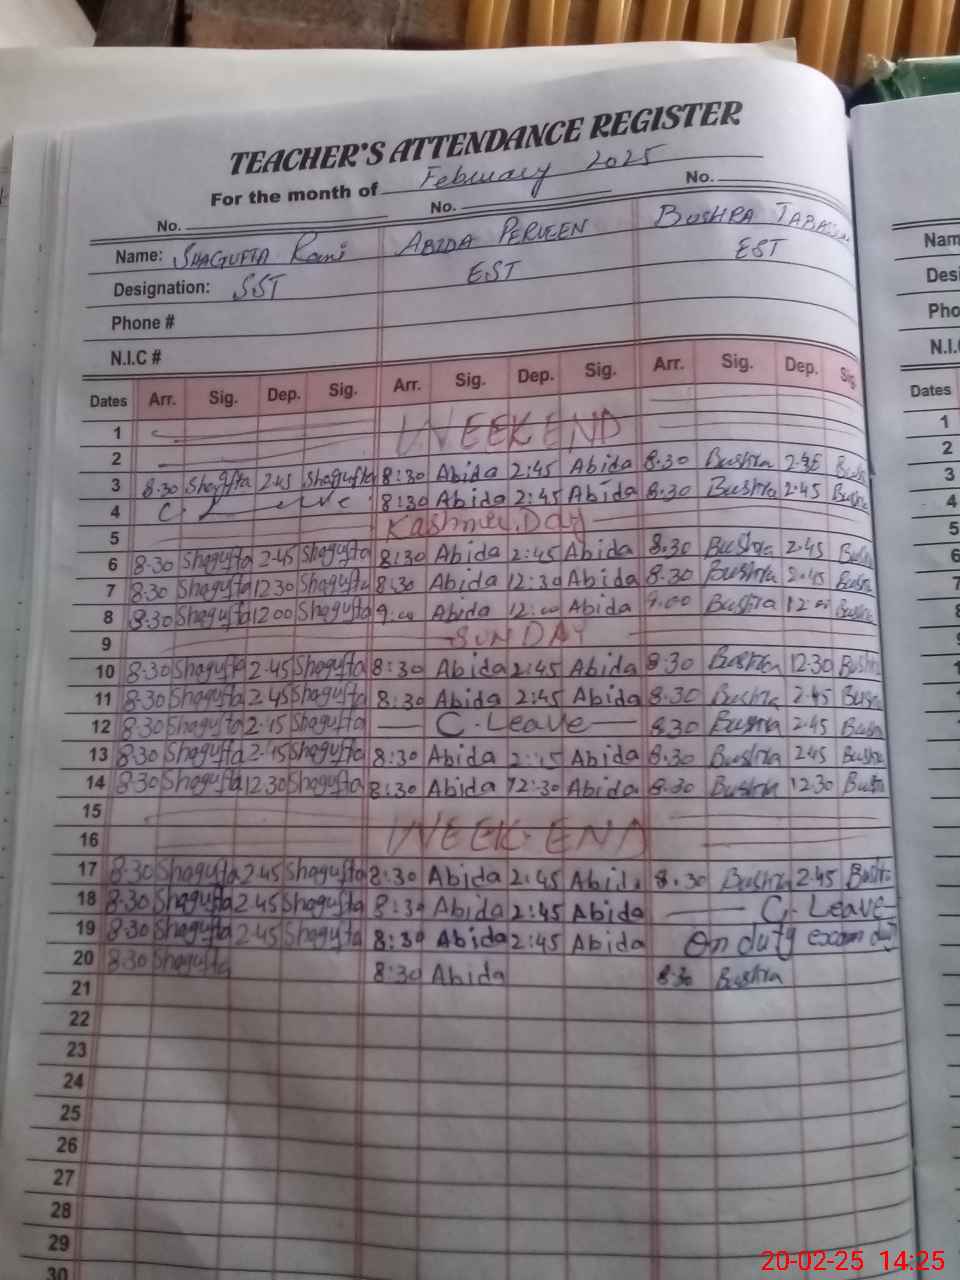 TEACHER'S ATTENDANCE REGISTER
For the month of February 2025
No. No. No.
Name: SHAGUFTA Rani ABIDA PERVEEN BUSHRA TABASSUM
Designation: SST EST EST
Phone #
N.I.C #
Dates Arr. Sig. Dep. Sig. Arr. Sig. Dep. Sig. Arr. Sig. Dep. Sig.
1 WEEKEND
2
3 8:30 Shagufta 2:45 Shagufta 8:30 Abida 2:45 Abida 8.30 Bushra 2:45 Bushra
4 C. Leave 8:30 Abida 2:45 Abida 8.30 Bushra 2.45 Bushra
5 Kashmir Day
6 8.30 Shagufta 2.45 Shagufta 8:30 Abida 2:45 Abida 8.30 Bushra 2.45 Bushra
7 8:30 Shagufta 12 30 Shagufta 8:30 Abida 12:30 Abida 8.30 Bushra 2.45 Bushra
8 8.30 Shagufta 12 00 Shagufta 9:00 Abida 12:00 Abida 9.00 Bushra 12.00 Bushra
9 SUNDAY
10 8.30 Shagufta 2.45 Shagufta 8:30 Abida 2:45 Abida 8.30 Bushra 12.30 Bushra
11 8.30 Shagufta 2.45 Shagufta 8:30 Abida 2:45 Abida 8.30 Bushra 2.45 Bushra
12 8.30 Shagufta 2.45 Shagufta C. Leave 8.30 Bushra 2.45 Bushra
13 8.30 Shagufta 2.45 Shagufta 8:30 Abida 2:45 Abida 8.30 Bushra 2.45 Bushra
14 8.30 Shagufta 12.30 Shagufta 8:30 Abida 12:30 Abida 8.30 Bushra 12.30 Bushra
15
16 WEEK-END
17 8.30 Shagufta 2.45 Shagufta 8:30 Abida 2:45 Abida 8.30 Bushra 2.45 Bushra
18 8.30 Shagufta 2.45 Shagufta 8:30 Abida 2:45 Abida C. Leave
19 8.30 Shagufta 2.45 Shagufta 8:30 Abida 2:45 Abida On duty exam duty
20 8.30 Shagufta 8:30 Abida 8.30 Bushra
21
22
23
24
25
26
27
28
29
30
Name
Dates
1
2
3
4
5
6
7
8
9
10
11
12
13
20-02-25 14:25